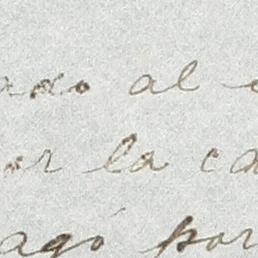 ado al
or la ca
agó por